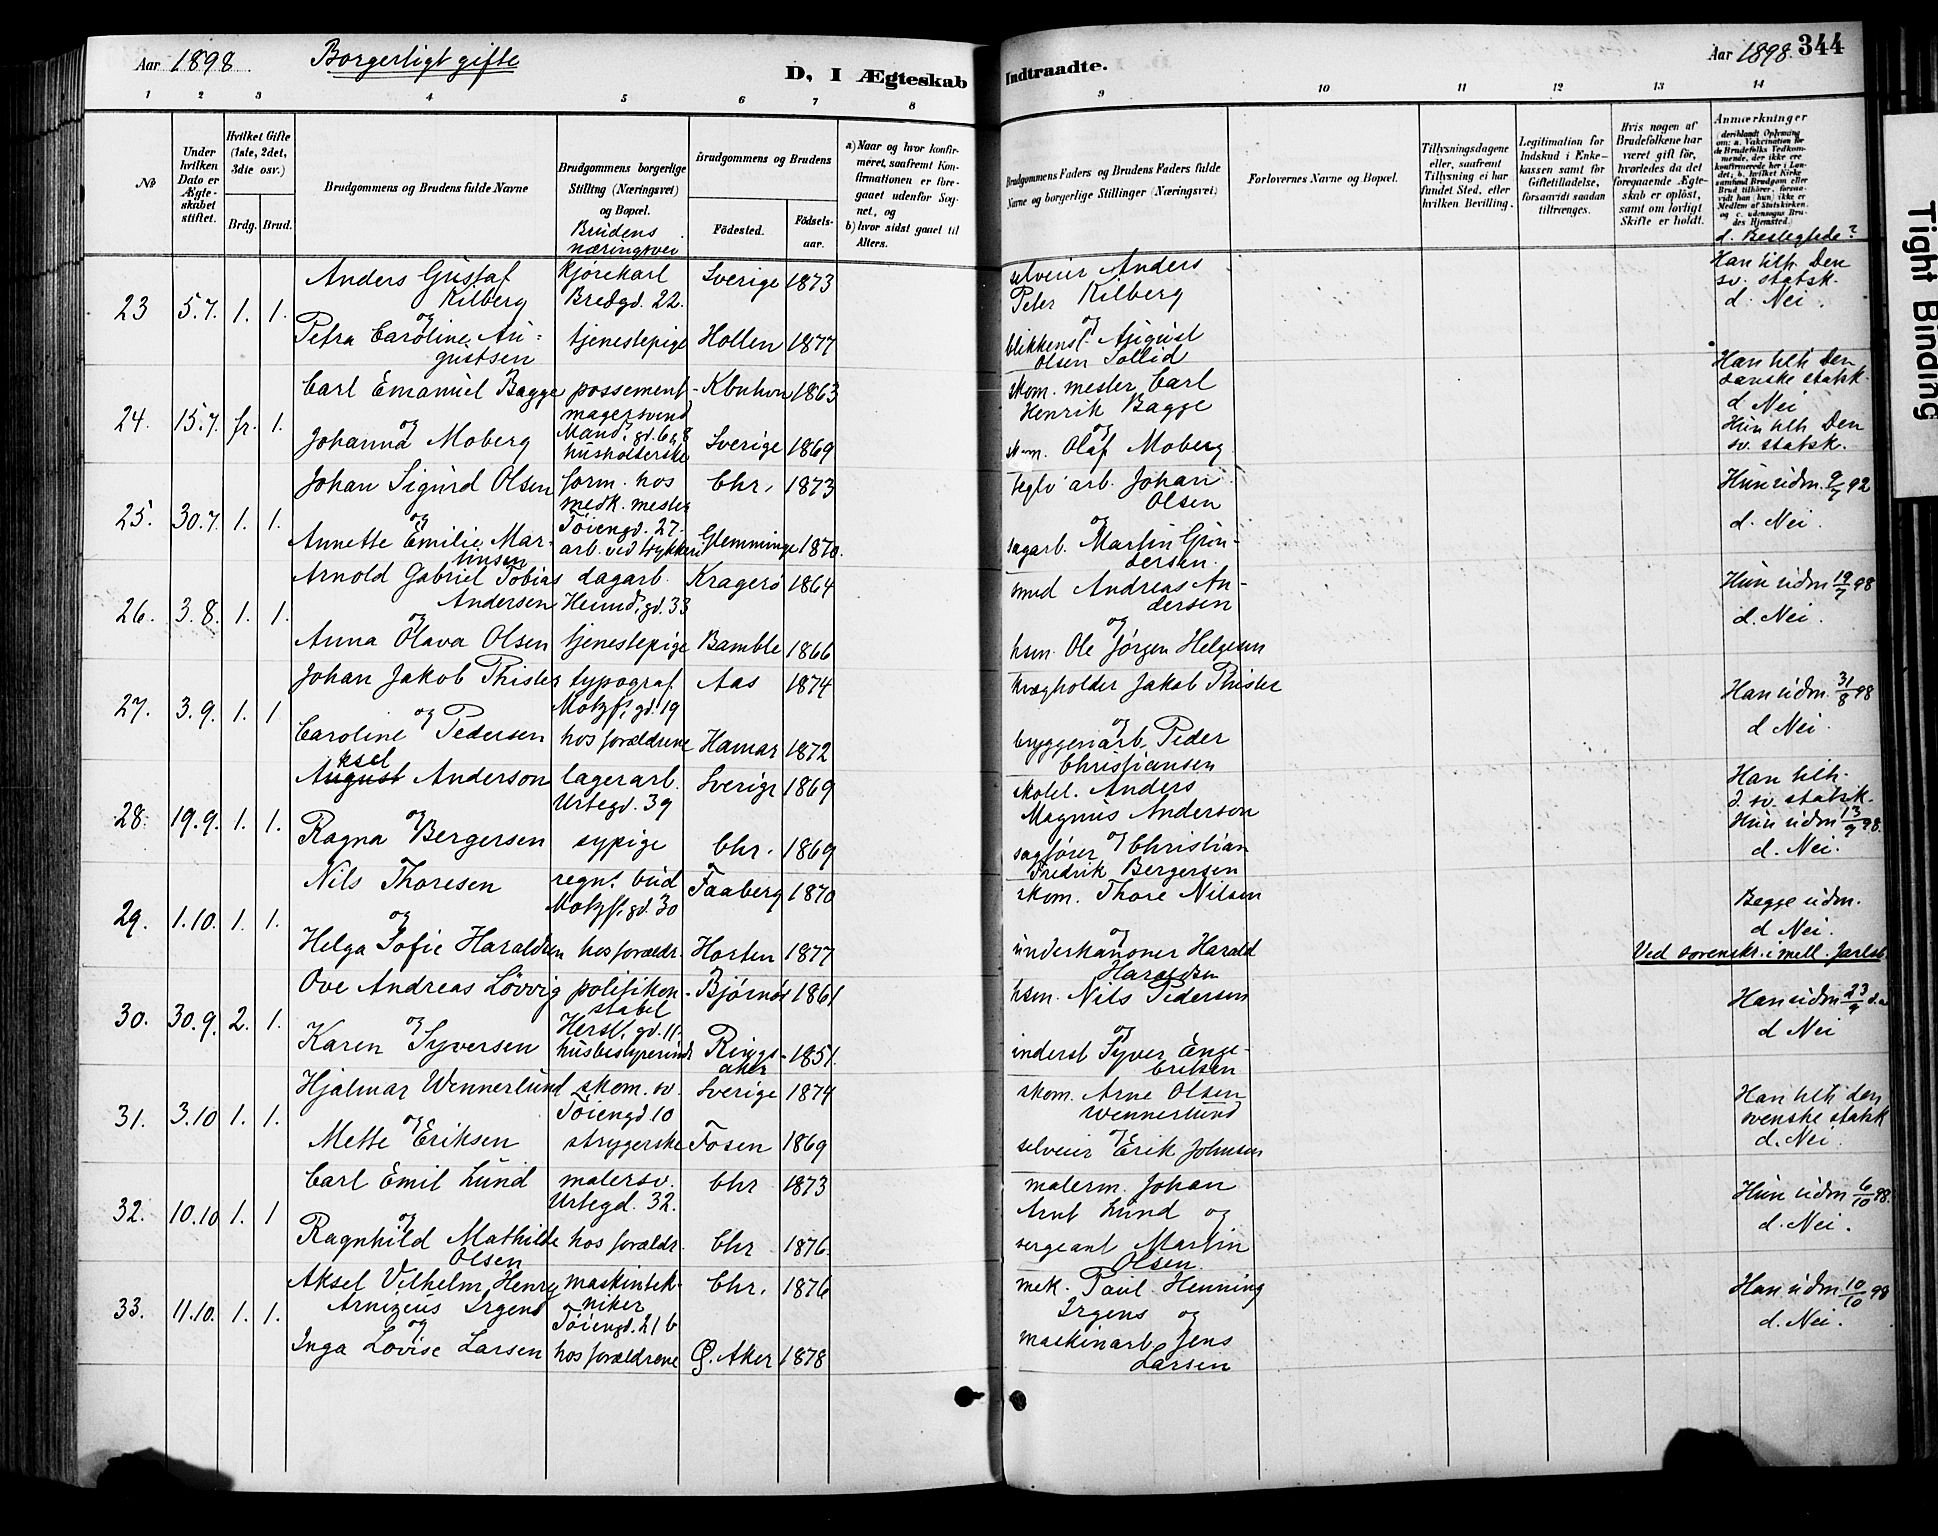 Aar 1898. Borgerligt gifte D, I Ægteskab
Indtraadte. Aar 1898. 344
1 2 3 4 5 6 7 8
9 10 11 12 13 14
No
Under hvilken Dato er Ægteskabet stiftet.
Hvilket Gifte (1ste, 2det, 3die osv.)
Brdg. Brud.
Brudgommens og Brudens fulde Navne
Brudgommens borgerlige Stilling (Næringsvei) og Bopæl.
Brudens næringsvei
Brudgommens og Brudens
Fødested. Fødselsaar.
a) Naar og hvor konfirmeret, saafremt Konfirmationen er foregaaet udenfor Sognet, og
b) hvor sidst gaaet til Alters.
Brudgommens Faders og Brudens Faders fulde Navne og borgerlige Stillinger (Næringsvei)
Forlovernes Navne og Bopæl.
Tillysningsdagene eller, saafremt Tillysning ei har fundet Sted, efter hvilken Bevilling.
Legitimation for Indskud i Enkekassen samt for Giftetilladelse, forsaavidt saadan tiltrænges.
Hvis nogen af Brudefolkene har været gift før, hvorledes da det foregaaende Ægteskab er opløst, samt om lovligt Skifte er holdt.
Anmærkninger
d. Beslegtede?
23 5.7. 1. 1. Anders Gustaf Kilberg kjørekarl Bredgd. 22. Sverige 1873 selveier Anders Peter Kilberg Han tilh. Den sv. statsk. d. Nei.
og Petra Caroline Augustsen tjenestepige Hollen 1877 og blikkensl. August Olsen Tollid
24. 15.7. fr. 1. Carl Emanuel Bagge possementmagersvend Mand. gd. 6, 8 Kbnhvn 1863 skom. mester Carl Henrik Bagge Han tilh. Den danske statsk. d Nei
og Johanna Moberg husholderske Sverige 1869 og skom. Olaf Moberg Hun tilh Den sv. statsk.
25. 30.7. 1. 1. Johan Sigurd Olsen form. hos mek. mester Tøiengd. 27. Chr. 1873 teglv. arb. Johan Olsen Hun udm. 9/7 92 d. Nei.
og Annette Emilie Martinsen arb. ved trykkeri Glemminge 1870. og sagarb. Martin Gundersen.
26. 3.8. 1. 1. Arnold Gabriel Tobias Andersen dagarb. Heimd. gd. 33 Kragerø 1864 smed Andreas Andersen Hun udm 19/7 98 d. Nei.
og Anna Olava Olsen tjenestepige Bamble 1866 og hsm. Ole Jørgen Helgesen
27. 3.9. 1. 1 Johan Jakob Thisler typograf Motzf. gd. 19 Aas 1874 kvægholder Jakob Thisler Han udm. 31/8 98 d Nei.
og Caroline Pedersen hos forældrene Hamar 1872 og bryggeriarb. Peder Christiansen
28. 19.9. 1. 1. Aksel Anderson lagerarb. Urtegd. 39 Sverige 1869 Anders Magnus Anderson Han tilh. d. sv. statsk. Hun udm 13/9 98. d. Nei.
og Ragna Bergersen sypige Chr. 1869 og sagfører Christian Fredrik Bergersen
29. 1.10. 1. 1. Nils Thoresen regnt. bud Motzf. gd. 30 Faaberg 1870 skom. Thore Nilsen Begge udm. d Nei.
og Helga Sofie Haraldsen hos forældr. Horten 1877 og underkanoner Harald Haraldsen Ved sorenskr. i mell. Jarlsb.
30. 30.9. 2. 1. Ove Andreas Løvvig politikonstabel Hersl. gd. 11. Bjørnør 1861 hsm. Nils Pedersen Han udm 23/9 d.a. d Nei
og Karen Syversen husbestyrerinde Ringsaker 1851. og inderst Syver Engebriksen
31. 3.10 1. 1. Hjalmar Wennerlund skom. sv. Tøiengd 10 Sverige 1874 skom. Arne Olsen Wennerlund Han tilh den svenske statsk d. Nei.
og Mette Eriksen strygerske Fosen 1869 og selveier Erik Johnsen
32. 10.10 1. 1 Carl Emil Lund malersv. Urtegd. 32. Chr 1873 malerm. Johan Arnt Lund og Hun udm 6/10 98. d. Nei.
og Ragnhild Mathilde Olsen hos forældr. Chr 1876. sergeant Martin Olsen.
33. 11.10. 1. 1. Aksel Vilhelm Henry Arnizeus Irgens maskintekniker Tøiengd. 21 b Chr. 1876 mek. Paul Henning Irgens og Han udm 10/10 98 d. Nei.
og Inga Lovise Larsen hos forældrene Ø. Aker 1878 maskinarb. Jens Larsen
Tight Binding